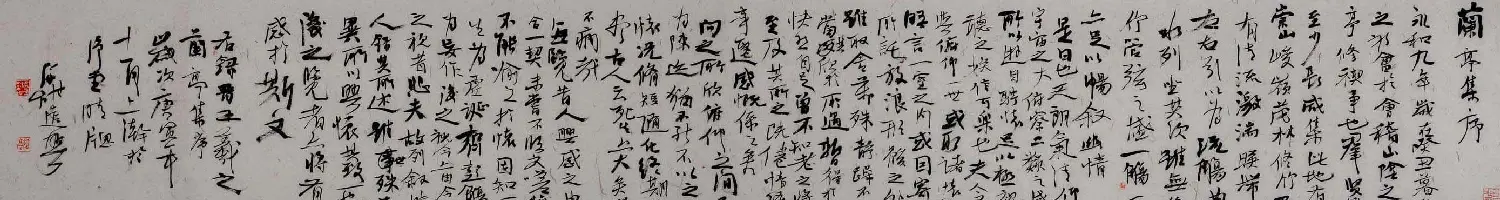 蘭亭集序
永和九年歲在癸丑暮
之初會於會稽山陰之
亭修禊事也群賢
至少長咸集此地有
崇山峻嶺茂林修竹
有清流激湍映帶
左右引以為流觴曲
水列坐其次雖無
竹管弦之盛一觴
亦足以暢敘幽情
是日也天朗氣清
宇宙之大俯察品類之盛
所以遊目騁懷足以極視
聽之娛信可樂也夫人
與俯仰一世或取諸懷
晤言一室之內或因寄
所託放浪形骸之外
雖取舍萬殊靜躁不
當其欣於所遇暫得於
快然自足不知老之將
至及其所之既倦情隨
事遷感慨係之矣
向之所欣俯仰之間
為陳迹猶不能不以之
懷況修短隨化終期
盡古人云死生亦大矣
不痛哉
每覽昔人興感之由
合一契未嘗不臨文嗟悼
不能喻之於懷固知一
生為虛誕齊彭殤
為妄作後之視今亦由今
之視昔悲夫故列敘時
人錄其所述雖世殊
異所以興懷其致一也
後之覽者亦將有
感於斯文
右錄晉王羲之
蘭亭集序
歲次庚寅年
十一月上澣於